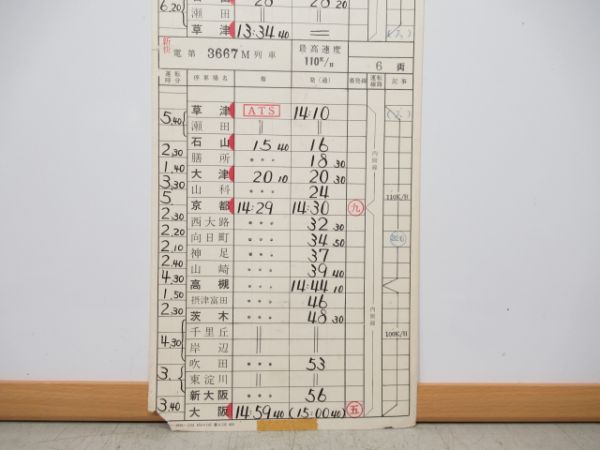 6.20
瀬田 || ||
草津 13:34 40 =
新快 電第 3667M 列車 最高速度 110K/H 6 両
運転時分 停車場名 着 発(通) 着発線 運転線路 記事
草津 ATS 14:10
5.40 瀬田 || ||
石山 15 40 16
2.30 膳所 ・・・ 18 30
1.40 大津 20 10 20 30
3.30 山科 ・・・ 24
5 110K/H
京都 14:29 14:30 九
2.30 西大路 ・・・ 32 30
2.20 向日町 ・・・ 34 50
2.10 神足 ・・・ 37
2.40 山崎 ・・・ 39 40
4.30 高槻 ・・・ 14:44 10
1.50 摂津富田 ・・・ 46
2.30 茨木 ・・・ 48 30
千里丘 || || 100K/H
4.30 岸辺 || ||
吹田 ・・・ 53
3. 東淀川 || ||
新大阪 ・・・ 56
3.40 大阪 14:59 40 (15:00 40) 五
内側線
内側線